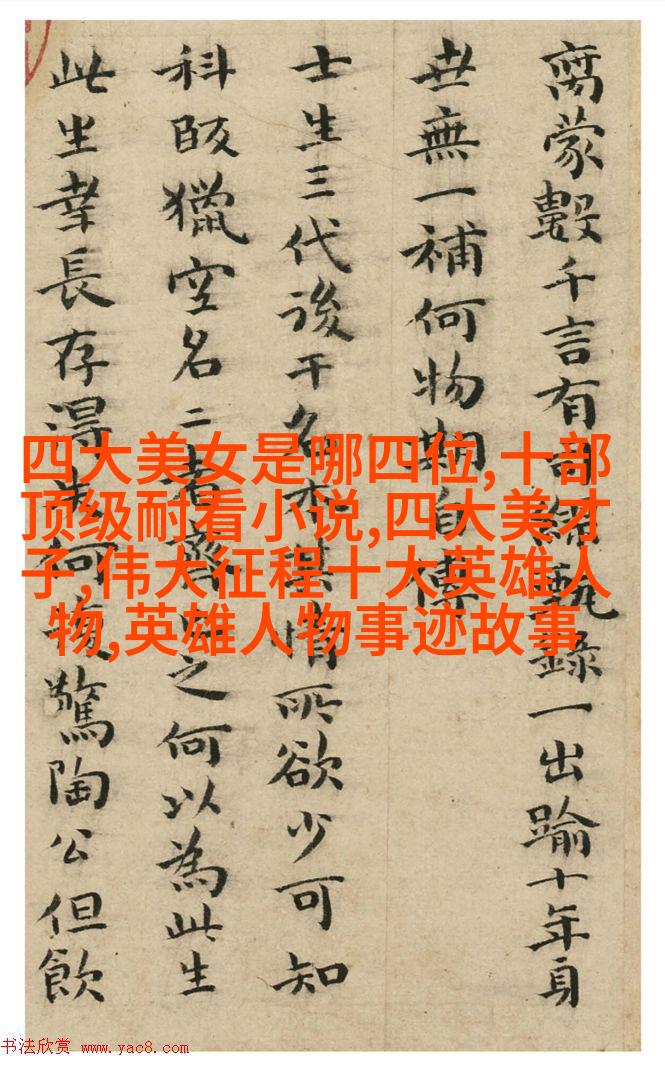 蒙數千言有甄錄一出踰十年身
世無一補何物期自傳
士生三代後干名情所欲少可知
科獵空名二者齊之何以為此生
此生幸長存得失何復驚陶公但飲
四大美女是哪四位,十部
顶级耐看小说,四大美才
子,伟大征程十大英雄人
物,英雄人物事迹故事
书法欣赏 www.yac8.com